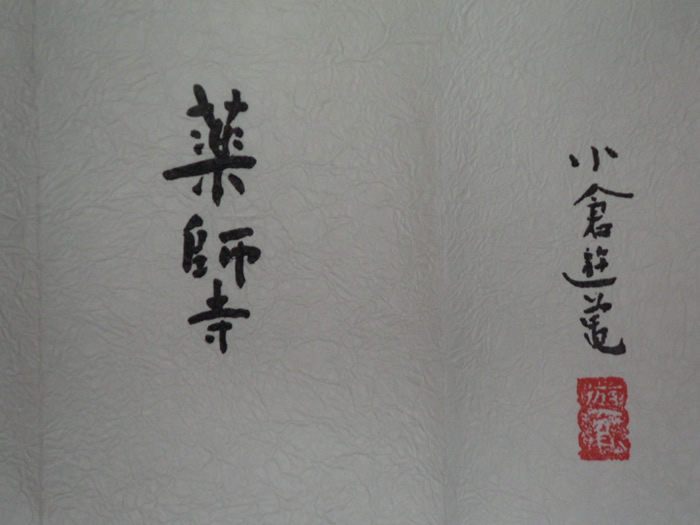 小倉遊亀
遊亀
薬師寺